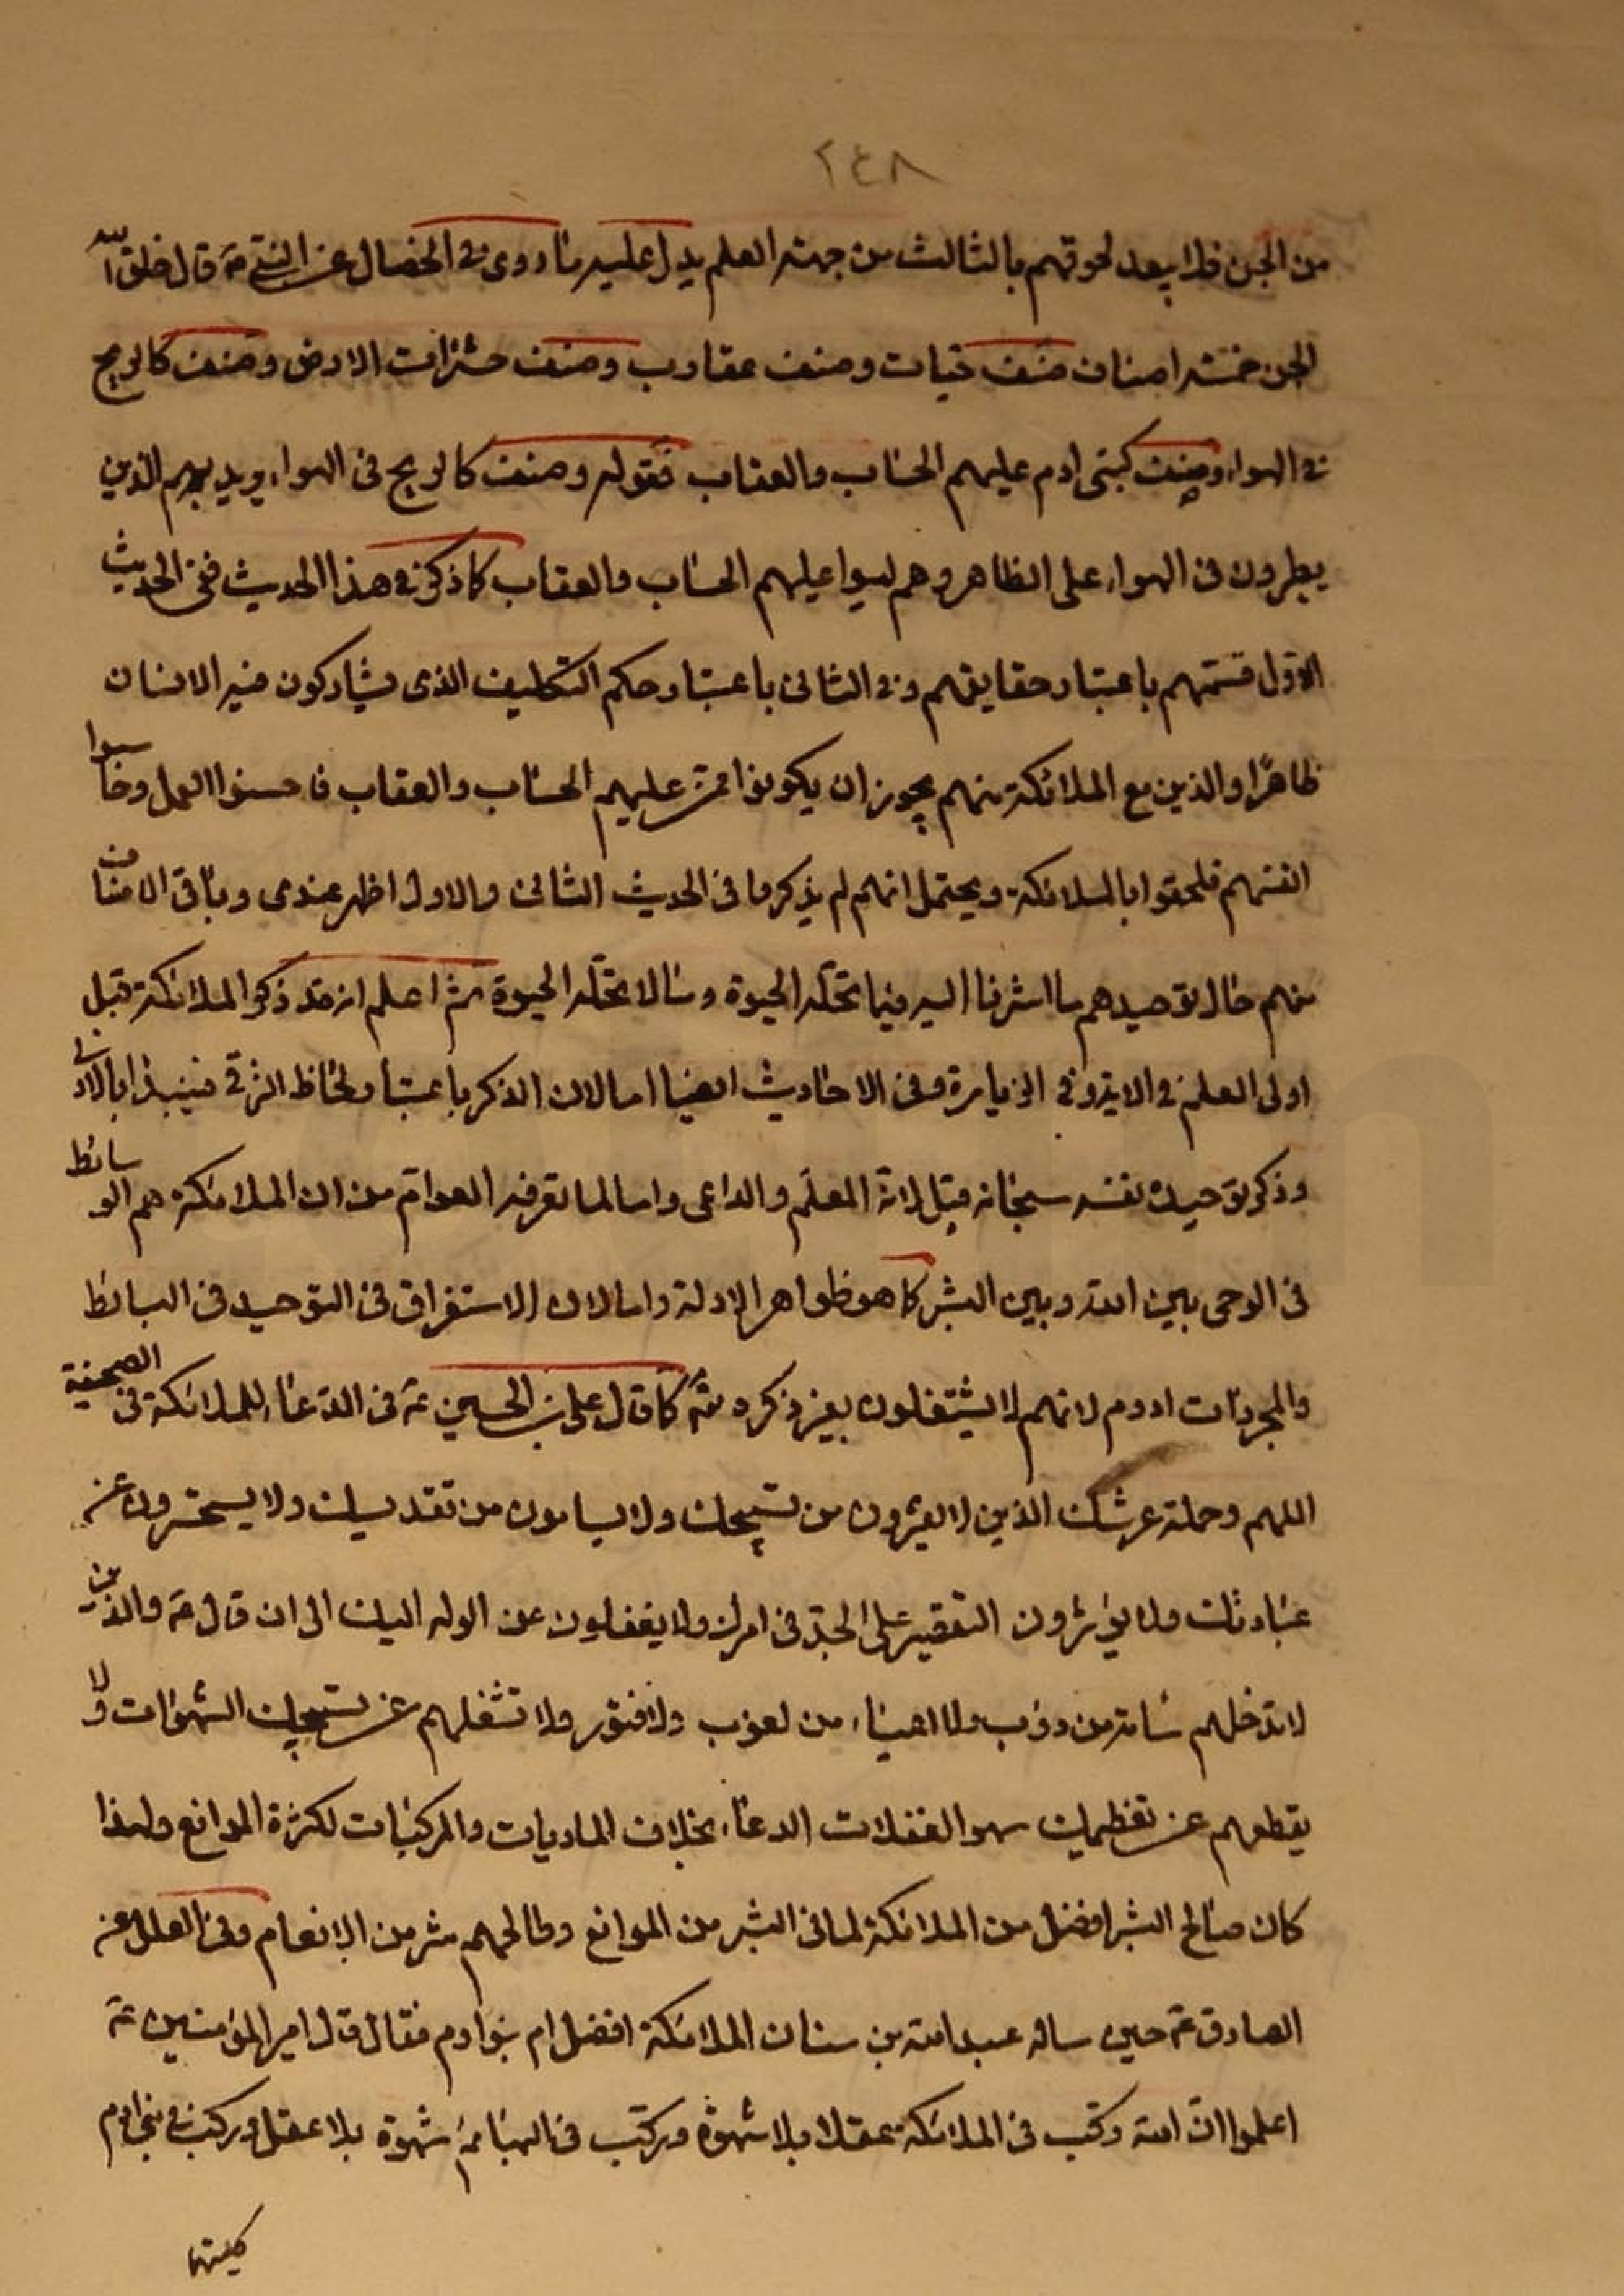 ٢٤٨
من الجن فلا يبعد لحوقهم بالثالث من جهة العلم يدل عليه ما روى في الخصال عن النبي ص قال خلق الله
الجن خمسة اصناف صنف حيات وصنف عقارب وصنف حشرات الارض وصنف كالريح
في الهواء وصنف كبنى ادم عليهم الحساب والعقاب فقوله وصنف كالريح فى الهواء يريد بهم الذين
يطيرون فى الهواء على الظاهر وهم ليسوا عليهم الحساب والعقاب كما ذكر في هذا الحديث ففى الحديث
الاول قسمتهم باعتبار حقايقهم وفى الثانى باعتبار حكم التكليف الذى يشاركون فيه الانسان
ظاهرا والذين مع الملائكة منهم يجوز ان يكونوا ممن عليهم الحساب والعقاب فاحسنوا العمل وحاسبوا
انفسهم فلحقوا بالملائكة ويحتمل انهم لم يذكروا فى الحديث الثانى والاول اظهر عندى وباقى الاصناف
منهم حال توحيدهم ما اشرنا اليه فيما تحله الحيوة وما لا تحله الحيوة ثم اعلم انه قد ذكر الملائكة قبل
اولى العلم في الاية وفي الزيارة وفى الاحاديث ايضا اما لان الذكر باعتبار لحاظ الترقى فيبدأ بالادنى
وذكر توحيده نفسه سبحانه قبل لانه المعلم والداعى واما لما تعرفه العوام من ان الملائكة هم الوسائط
فى الوحى بين الله وبين البشر كما هو ظواهر الادلة واما لان الاستغراق فى التوحيد فى البسائط
والمجردات ادوم لانهم لا يشتغلون بغير ذكره كما قال على بن الحسين ع فى الدعاء للملائكة فى الصحيفة
اللهم وحملة عرشك الذين لا يفترون من تسبيحك ولا يسامون من تقديسك ولا يستحسرون عن
عبادتك ولا يؤثرون التقصير على الجد فى امرك ولا يغفلون عن الوله اليك الى ان قال ع والذين
لا تدخلهم سامة من دؤب ولا اعياء من لغوب ولا فتور ولا تشغلهم عن تسبيحك الشهوات ولا
يقطعهم عن تعظيمك سهو الغفلات الدعاء بخلاف الماديات والمركبات لكثرة الموانع ولهذا
كان صالح البشر افضل من الملائكة لما فى البشر من الموانع وطالحهم شر من الانعام وفى العلل عن
الصادق ع حين ساله عبد الله بن سنان الملائكة افضل ام بنو ادم فقال قال امير المؤمنين ع
اعلموا ان الله ركب فى الملائكة عقلا بلا شهوة وركب فى البهائم شهوة بلا عقل وركب فى بنى ادم
كليتهما